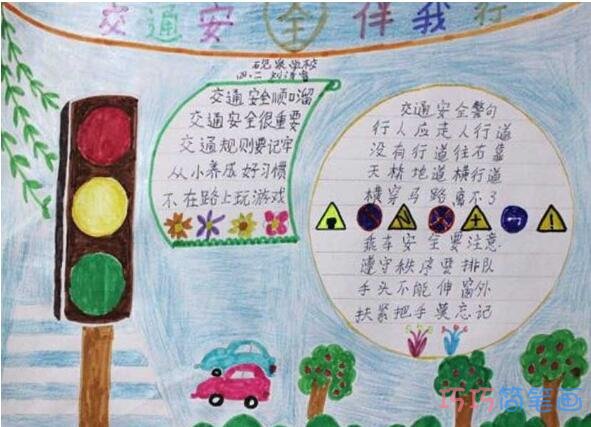 交通安全伴我行
砚泉学校
四.二
交通安全顺口溜
交通安全很重要
交通规则要记牢
从小养成好习惯
不在路上玩游戏
交通安全警句
行人应走人行道
没有行道往右靠
天桥地道横行道
横穿马路离不了
乘车安全要注意
遵守秩序要排队
手头不能伸窗外
扶紧把手莫忘记
巧巧简笔画